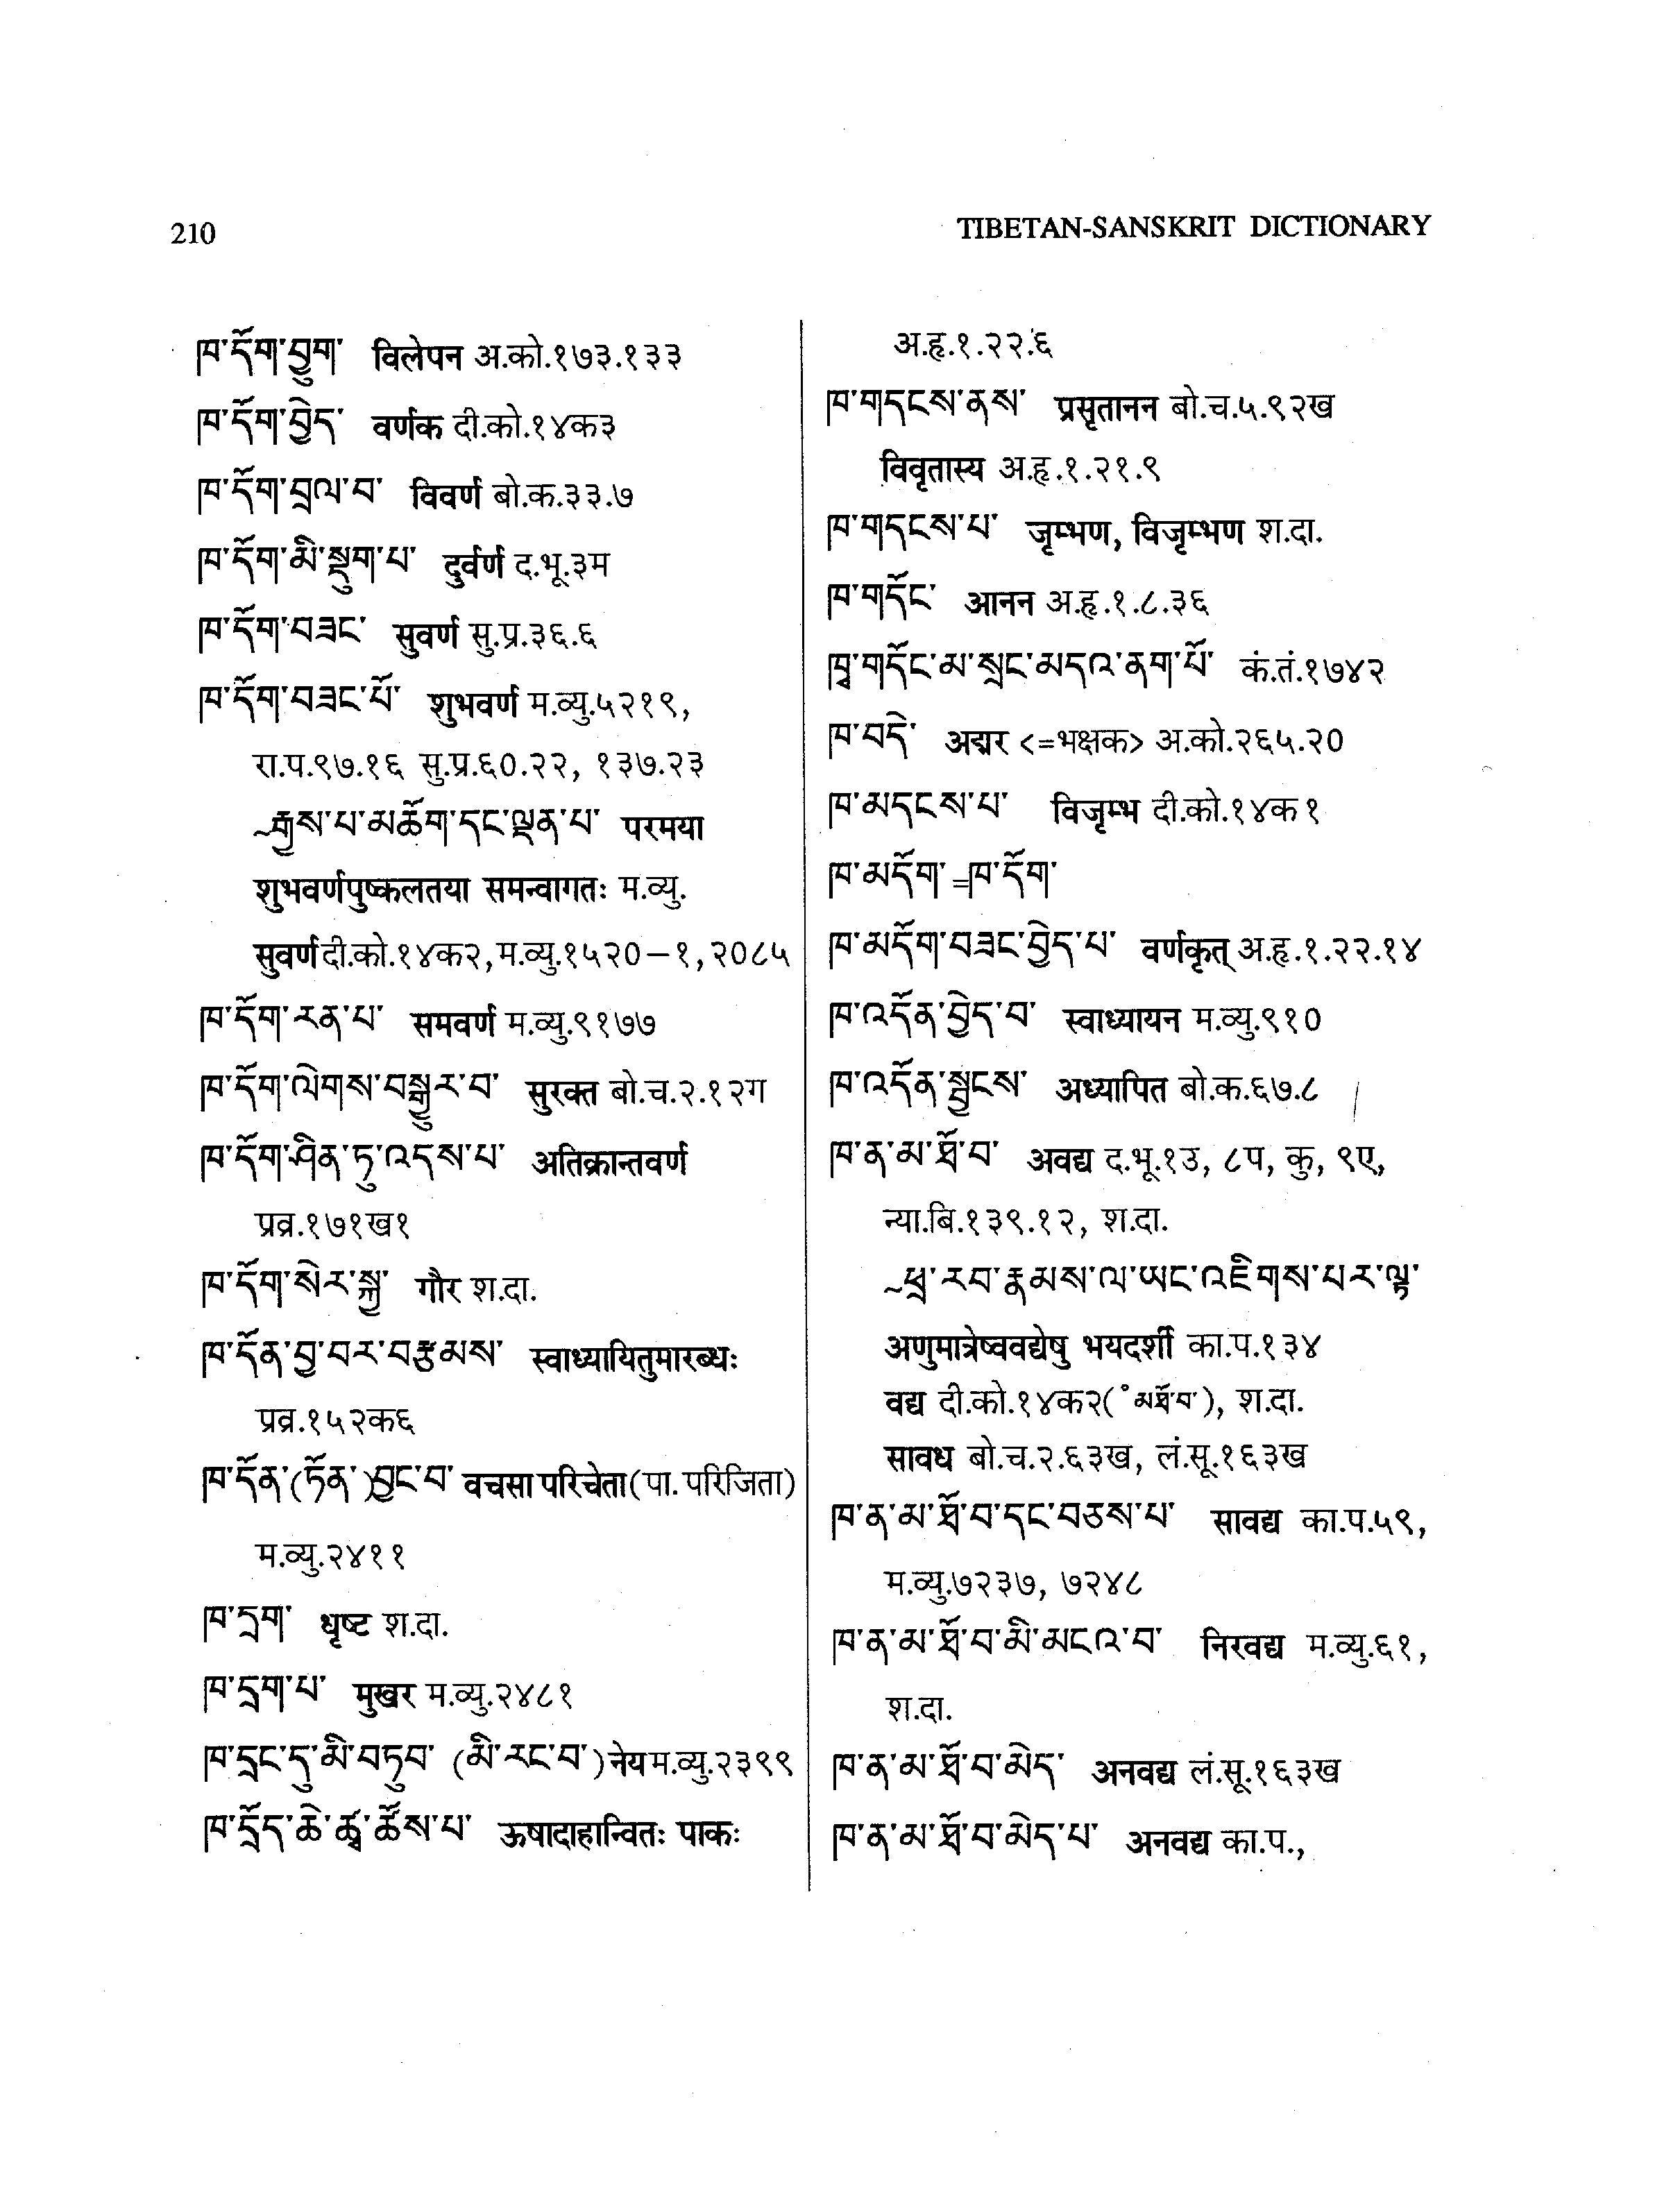 210
TIBETAN-SANSKRIT DICTIONARY
ཁ་དོག་བྱུག་ विलेपन अ.को.१७३.१३३
ཁ་དོག་བྱེད་ वर्णक दी.को.१४क३
ཁ་དོག་བྲལ་བ་ विवर्ण बो.क.३३.७
ཁ་དོག་མི་སྡུག་པ་ दुर्वर्ण द.भू.३म
ཁ་དོག་བཟང་ सुवर्ण सु.प्र.३६.६
ཁ་དོག་བཟང་པོ་ शुभवर्ण म.व्यु.५२१९,
रा.प.९७.१६ सु.प्र.६०.२२, १३७.२३
~རྒྱས་པ་མཆོག་དང་ལྡན་པ་ परमया
शुभवर्णपुष्कलतया समन्वागतः म.व्यु.
सुवर्ण दी.को.१४क२, म.व्यु.१५२०–१, २०८५
ཁ་དོག་རན་པ་ समवर्ण म.व्यु.९१७७
ཁ་དོག་ལེགས་བསྒྱུར་བ་ सुरक्त बो.च.२.१२ग
ཁ་དོག་ཤིན་ཏུ་འདས་པ་ अतिक्रान्तवर्ण
प्रव्र.१७१ख१
ཁ་དོག་སེར་སྐྱ་ गौर श.दा.
ཁ་དོན་བྱ་བར་བརྩམས་ स्वाध्यायितुमारब्धः
प्रव्र.१५२क६
ཁ་དོན་(ཏོན་)བྱང་བ་ वचसा परिचेता(पा. परिजिता)
म.व्यु.२४११
ཁ་དྲག་ धृष्ट श.दा.
ཁ་དྲག་པ་ मुखर म.व्यु.२४८१
ཁ་དྲང་དུ་མི་བཏུབ་ (མི་རང་བ་) नेय म.व्यु.२३९९
ཁ་དྲོད་ཆེ་ཚྭ་ཚོས་པ་ ऊषादाहान्वितः पाकः
अ.हृ.१.२२.६
ཁ་གདངས་ནས་ प्रसृतानन बो.च.५.९२ख
विवृतास्य अ.हृ.१.२१.९
ཁ་གདངས་པ་ जृम्भण, विजृम्भण श.दा.
ཁ་གདོང་ आनन अ.हृ.१.८.३६
ཁྭ་གདོང་མ་སྲང་མདའ་ནག་པོ་ कं.तं.१७४२
ཁ་བདེ་ अद्मर <=भक्षक> अ.को.२६५.२०
ཁ་མདངས་པ་ विजृम्भ दी.को.१४क१
ཁ་མདོག་=ཁ་དོག་
ཁ་མདོག་བཟང་བྱེད་པ་ वर्णकृत् अ.हृ.१.२२.१४
ཁ་འདོན་བྱེད་བ་ स्वाध्यायन म.व्यु.९१०
ཁ་འདོན་སྦྱངས་ अध्यापित बो.क.६७.८
ཁ་ན་མ་ཐོ་བ་ अवद्य द.भू.१उ, ८प, कु, ९ए,
न्या.बि.१३९.१२, श.दा.
~ཕྲ་རབ་རྣམས་ལ་ཡང་འཇིགས་པར་ལྟ་
अणुमात्रेष्ववद्येषु भयदर्शी का.प.१३४
वद्य दी.को.१४क२(˚མཐོ་བ་), श.दा.
सावध बो.च.२.६३ख, लं.सू.१६३ख
ཁ་ན་མ་ཐོ་བ་དང་བཅས་པ་ सावद्य का.प.५९,
म.व्यु.७२३७, ७२४८
ཁ་ན་མ་ཐོ་བ་མི་མངའ་བ་ निरवद्य म.व्यु.६१,
श.दा.
ཁ་ན་མ་ཐོ་བ་མེད་ अनवद्य लं.सू.१६३ख
ཁ་ན་མ་ཐོ་བ་མེད་པ་ अनवद्य का.प.,